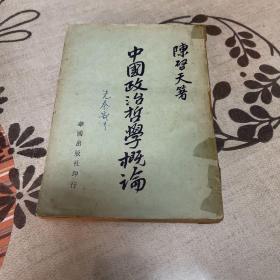 陳啓天著
中國政治哲學概論
華國出版社印行